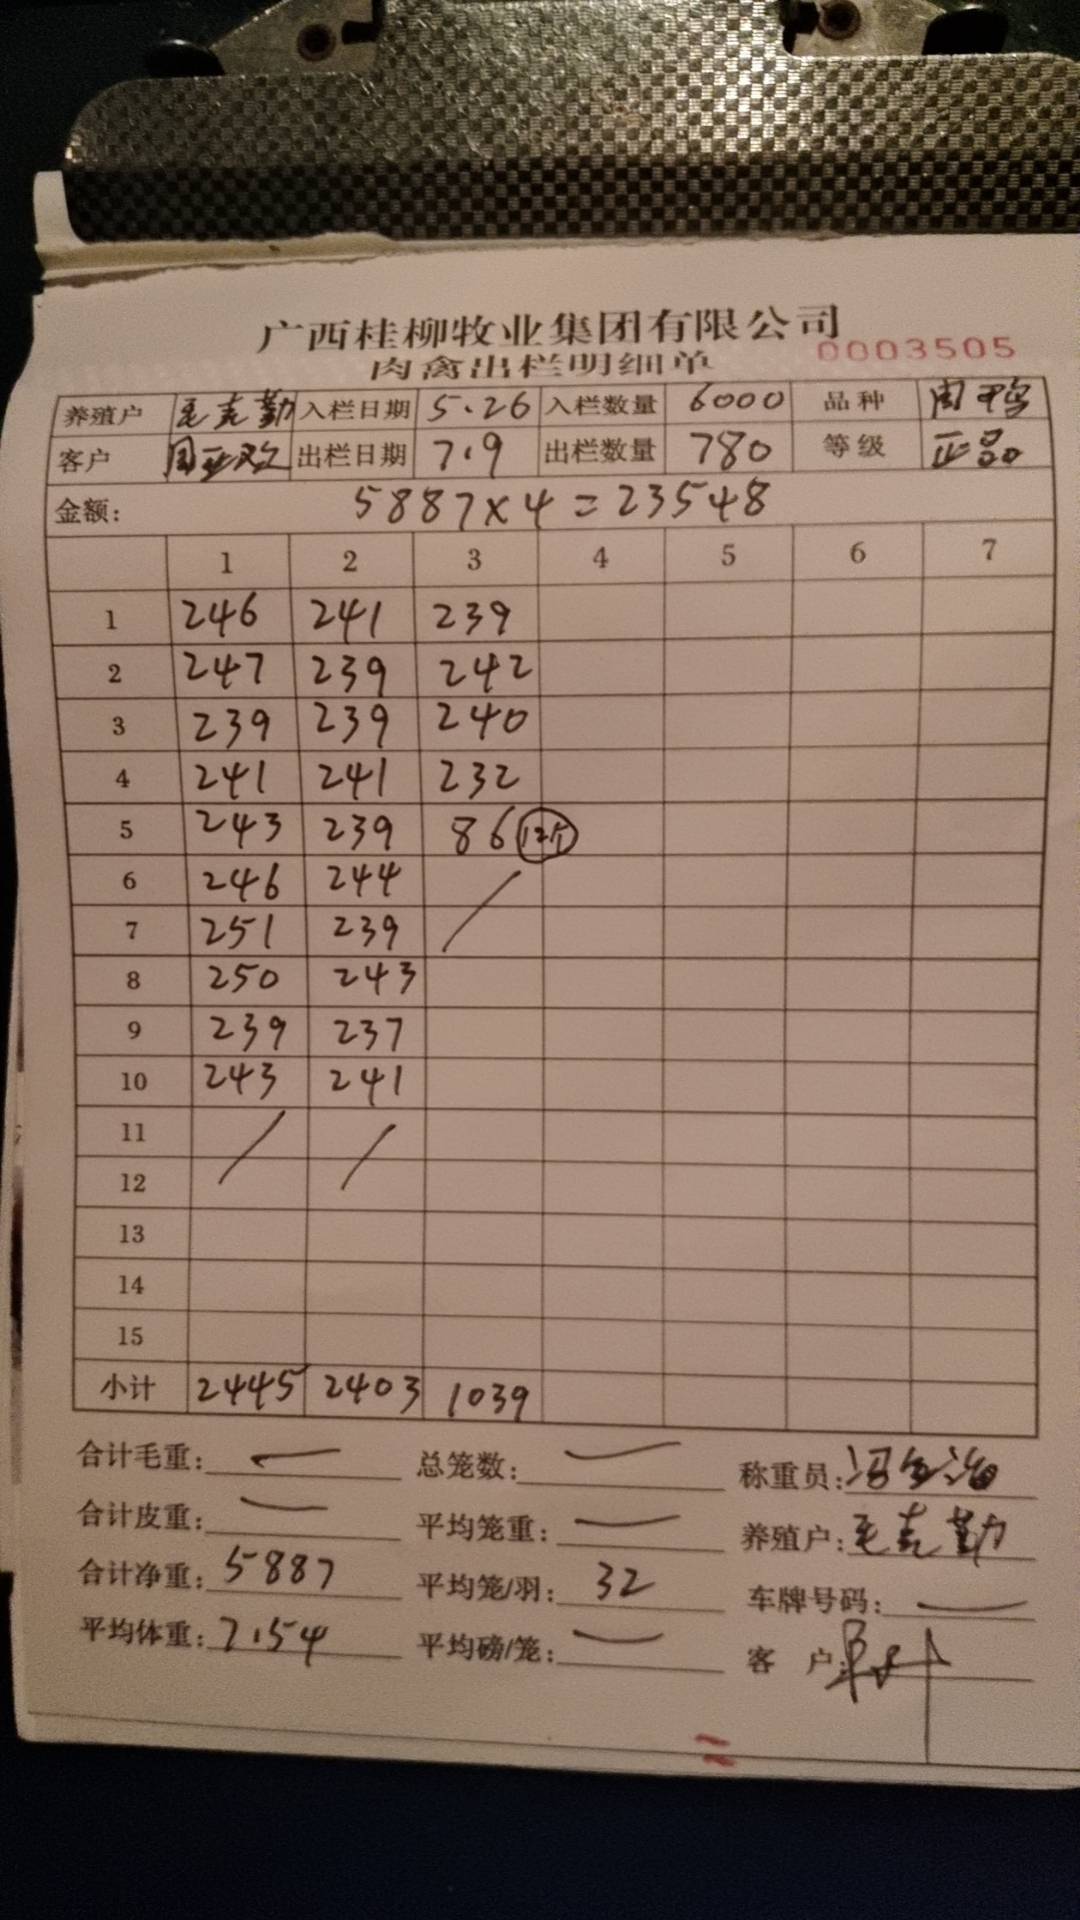 广西桂柳牧业集团有限公司
肉禽出栏明细单 0003505
养殖户 毛克勤 入栏日期 5.26 入栏数量 6000 品种
客户 周亚欢 出栏日期 7.9 出栏数量 780 等级 正品
金额: 5887×4=23548
1 2 3 4 5 6 7
1 246 241 239
2 247 239 242
3 239 239 240
4 241 241 232
5 243 239 86
6 246 244
7 251 239
8 250 243
9 239 237
10 243 241
11
12
13
14
15
小计 2445 2403 1039
合计毛重: 总笼数: 称重员:
合计皮重: 平均笼重: 养殖户: 毛克勤
合计净重: 5887 平均笼/羽: 32 车牌号码:
平均体重: 7.54 平均磅/笼: 客 户: